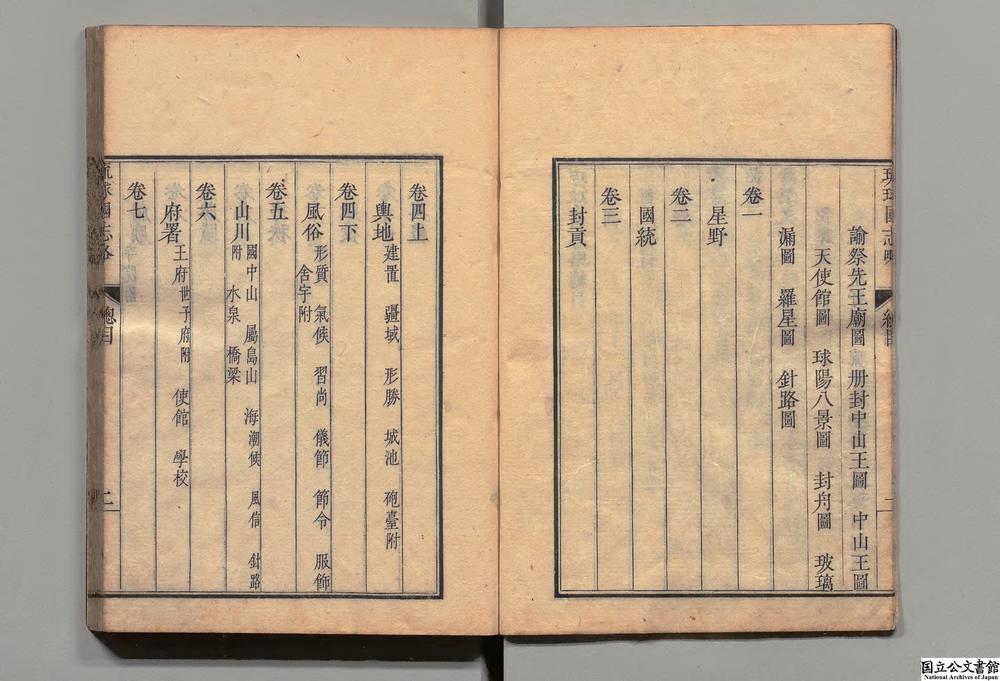 諭祭先王廟圖 册封中山王圖 中山王圖
天使館圖 球陽八景圖 封舟圖 玻璃
漏圖 羅星圖 針路圖
卷一
星野
卷二
國統
卷三
封貢
卷四上
輿地 建置 疆域 形勝 城池 砲臺附
卷四下
風俗 形質 氣候 習尚 儀節 節令 服飾
舍宇附
卷五
山川 國中山 屬島山 海潮候 風信 針路
附 水泉 橋梁
卷六
府署 王府世子府附 使館 學校
卷七
琉球國志略 總目 二
国立公文書館
National Archives of Japan